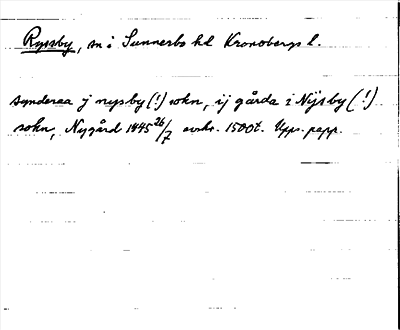 Ryssby, sn i Sunnerbo hd Kronobergs l.
synderaa j nysby (!) sokn, ij gårda i Nijsby (!)
sokn, Nygård 1445 26/7 avskr. 1500t. Upps. papp.